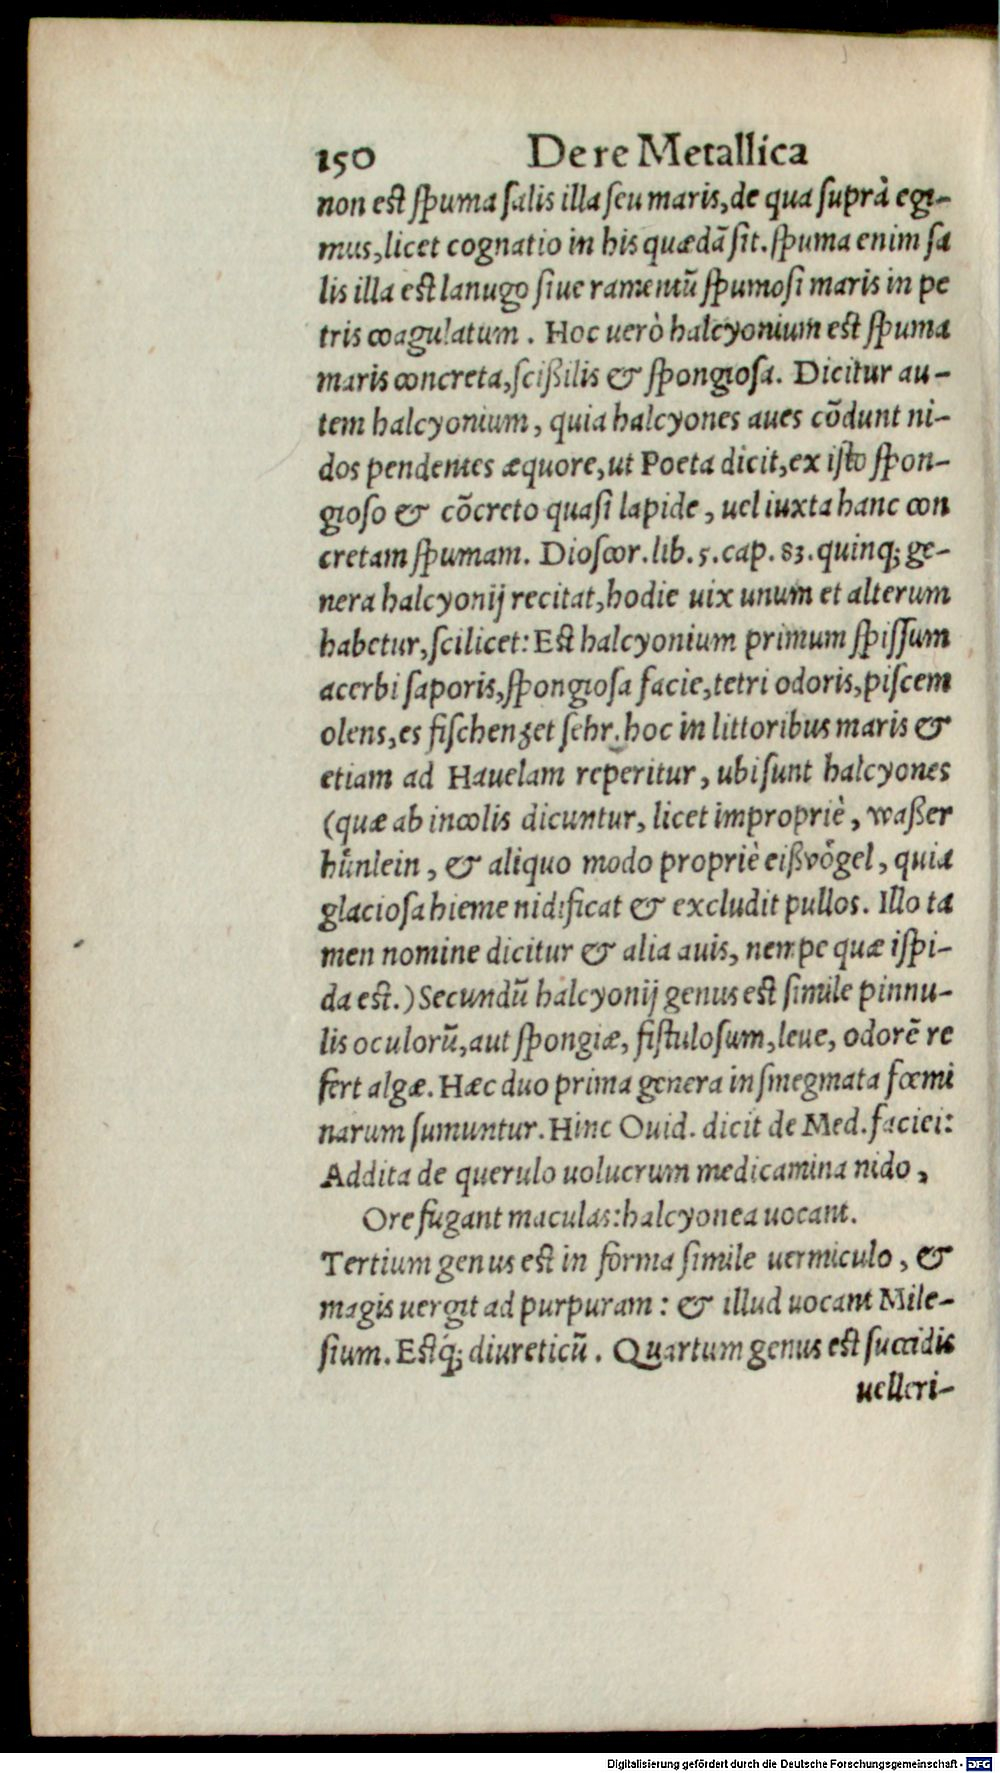 150 De re Metallica
non est spuma salis illa seu maris, de qua suprà egi-
mus, licet cognatio in his quædā sit. spuma enim sa
lis illa est lanugo siue ramentū spumosi maris in pe
tris coagulatum. Hoc uerò halcyonium est spuma
maris concreta, scißilis & spongiosa. Dicitur au-
tem halcyonium, quia halcyones aues cōdunt ni-
dos pendentes æquore, ut Poeta dicit, ex isto spon-
gioso & cōcreto quasi lapide, uel iuxta hanc con
cretam spumam. Dioscor. lib. 5. cap. 83. quinq; ge-
nera halcyonij recitat, hodie uix unum et alterum
habetur, scilicet: Est halcyonium primum spissum
acerbi saporis, spongiosa facie, tetri odoris, piscem
olens, es fischenzet sehr. hoc in littoribus maris &
etiam ad Hauelam reperitur, ubi sunt halcyones
(quæ ab incolis dicuntur, licet impropriè, waßer
huͤnlein, & aliquo modo propriè eißvoͤgel, quia
glaciosa hieme nidificat & excludit pullos. Illo ta
men nomine dicitur & alia auis, nempe quæ ispi-
da est.) Secundū halcyonij genus est simile pinnu-
lis oculorū, aut spongiæ, fistulosum, leue, odorē re
fert algæ. Hæc duo prima genera in smegmata fœmi
narum sumuntur. Hinc Ouid. dicit de Med. faciei:
Addita de querulo uolucrum medicamina nido,
Ore fugant maculas: halcyonea uocant.
Tertium genus est in forma simile uermiculo, &
magis uergit ad purpuram: & illud uocant Mile-
sium. Estq́; diureticū. Quartum genus est succidis
uelleri-
Digitalisierung gefördert durch die Deutsche Forschungsgemeinschaft - DFG